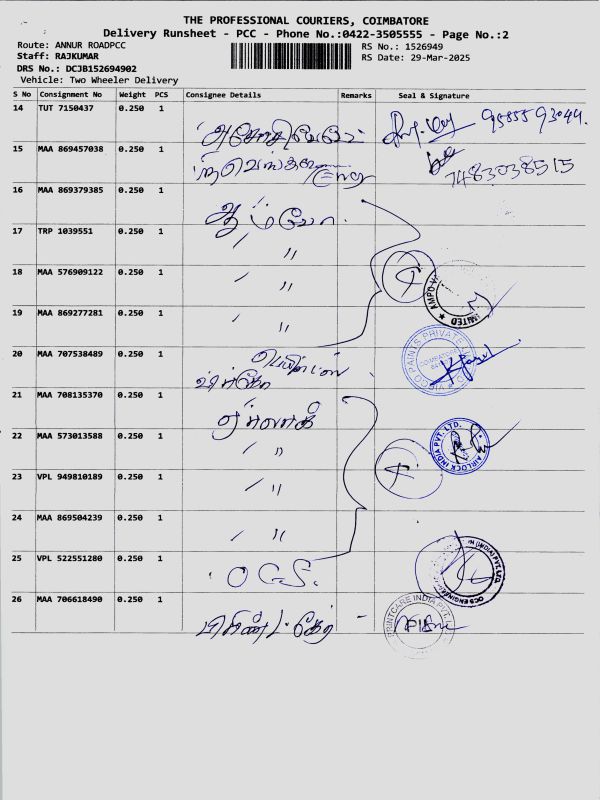 THE PROFESSIONAL COURIERS, COIMBATORE
Delivery Runsheet - PCC - Phone No.:0422-3505555 - Page No.:2
Route: ANNUR ROADPCC
RS No.: 1526949
Staff: RAJKUMAR
RS Date: 29-Mar-2025
DRS No.: DCJB152694902
Vehicle: Two Wheeler Delivery
S No Consignment No Weight PCS Consignee Details Remarks Seal & Signature
14 TUT 7150437 0.250 1
15 MAA 869457038 0.250 1
7483038515
16 MAA 869379385 0.250 1
17 TRP 1039551 0.250 1
" "
18 MAA 576909122 0.250 1
" "
19 MAA 869277281 0.250 1
" "
20 MAA 707538489 0.250 1
VISCO PAINTS PRIVATE
21 MAA 708135370 0.250 1
ஏர்லாக்
22 MAA 573013588 0.250 1
" "
AIRLOCK INDIA PVT. LTD.
23 VPL 949810189 0.250 1
" "
24 MAA 869504239 0.250 1
" "
25 VPL 522551280 0.250 1
O C S.
26 MAA 706618490 0.250 1
பிரிண்ட் கேர்
PRINTCARE INDIA PVT.